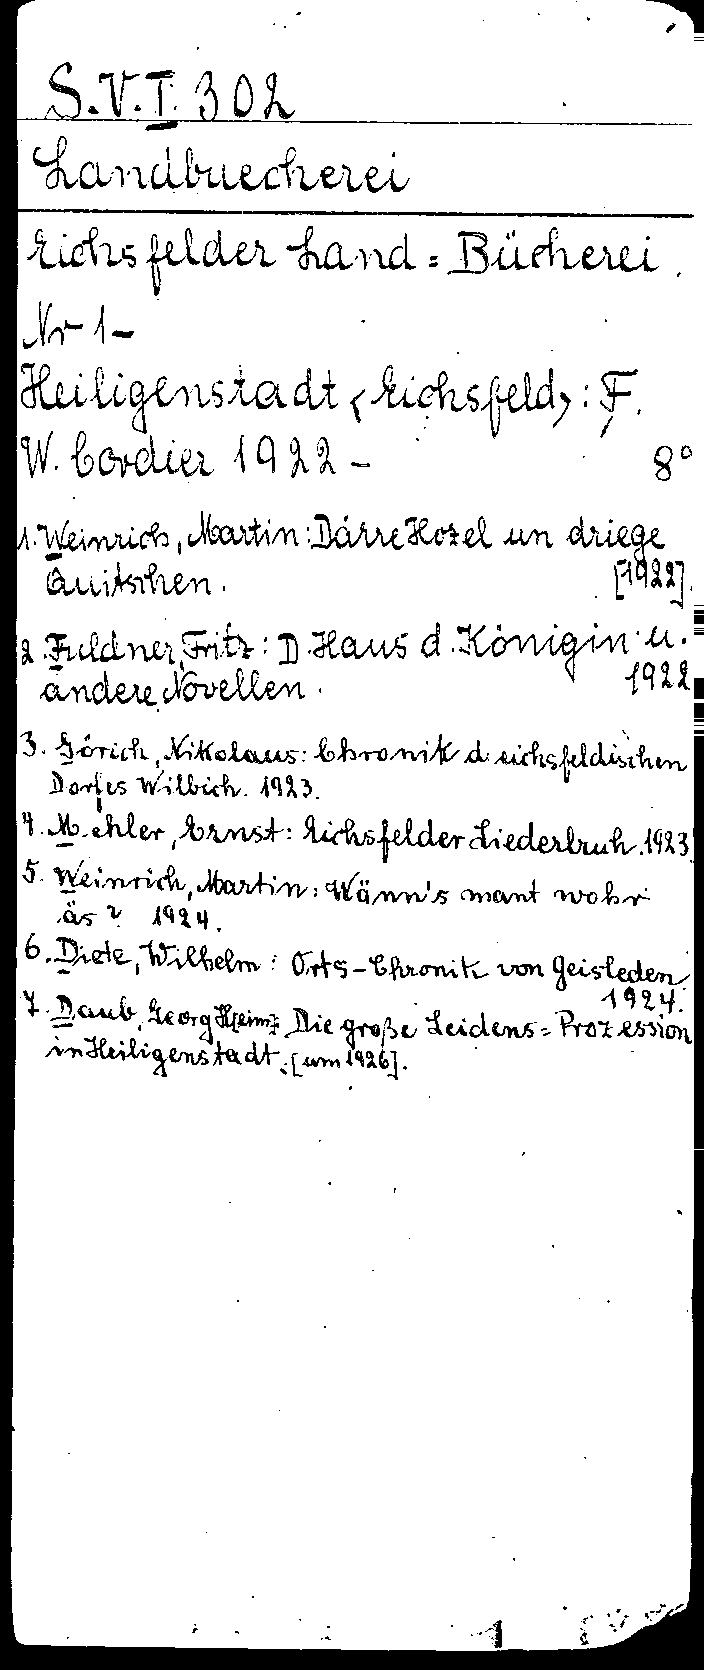 S.V.I. 302
Landbuecherei
Eichsfelder Land=Bücherei.
Nr 1-
Heiligenstadt <Eichsfeld>: F.
W. Cordier 1922 - 8°
1. Weinrich, Martin: Därre Hozel un driege
Quitschen. [1922].
2. Fuldner, Fritz: D. Haus d. Königin u.
andere Novellen. 1922
3. Görich, Nikolaus: Chronik d. eichsfeldischen
Dorfes Wilbich. 1923.
4. Mehler, Ernst: Eichsfelder Liederbuch. 1923
5. Weinrich, Martin: Wänn's mant wohr
äs? 1924.
6. Diete, Wilhelm: Orts-Chronik von Geisleden
1924.
7. Daub, Georg H[ein]: Die große Leidens=Prozession
in Heiligenstadt. [um 1926].